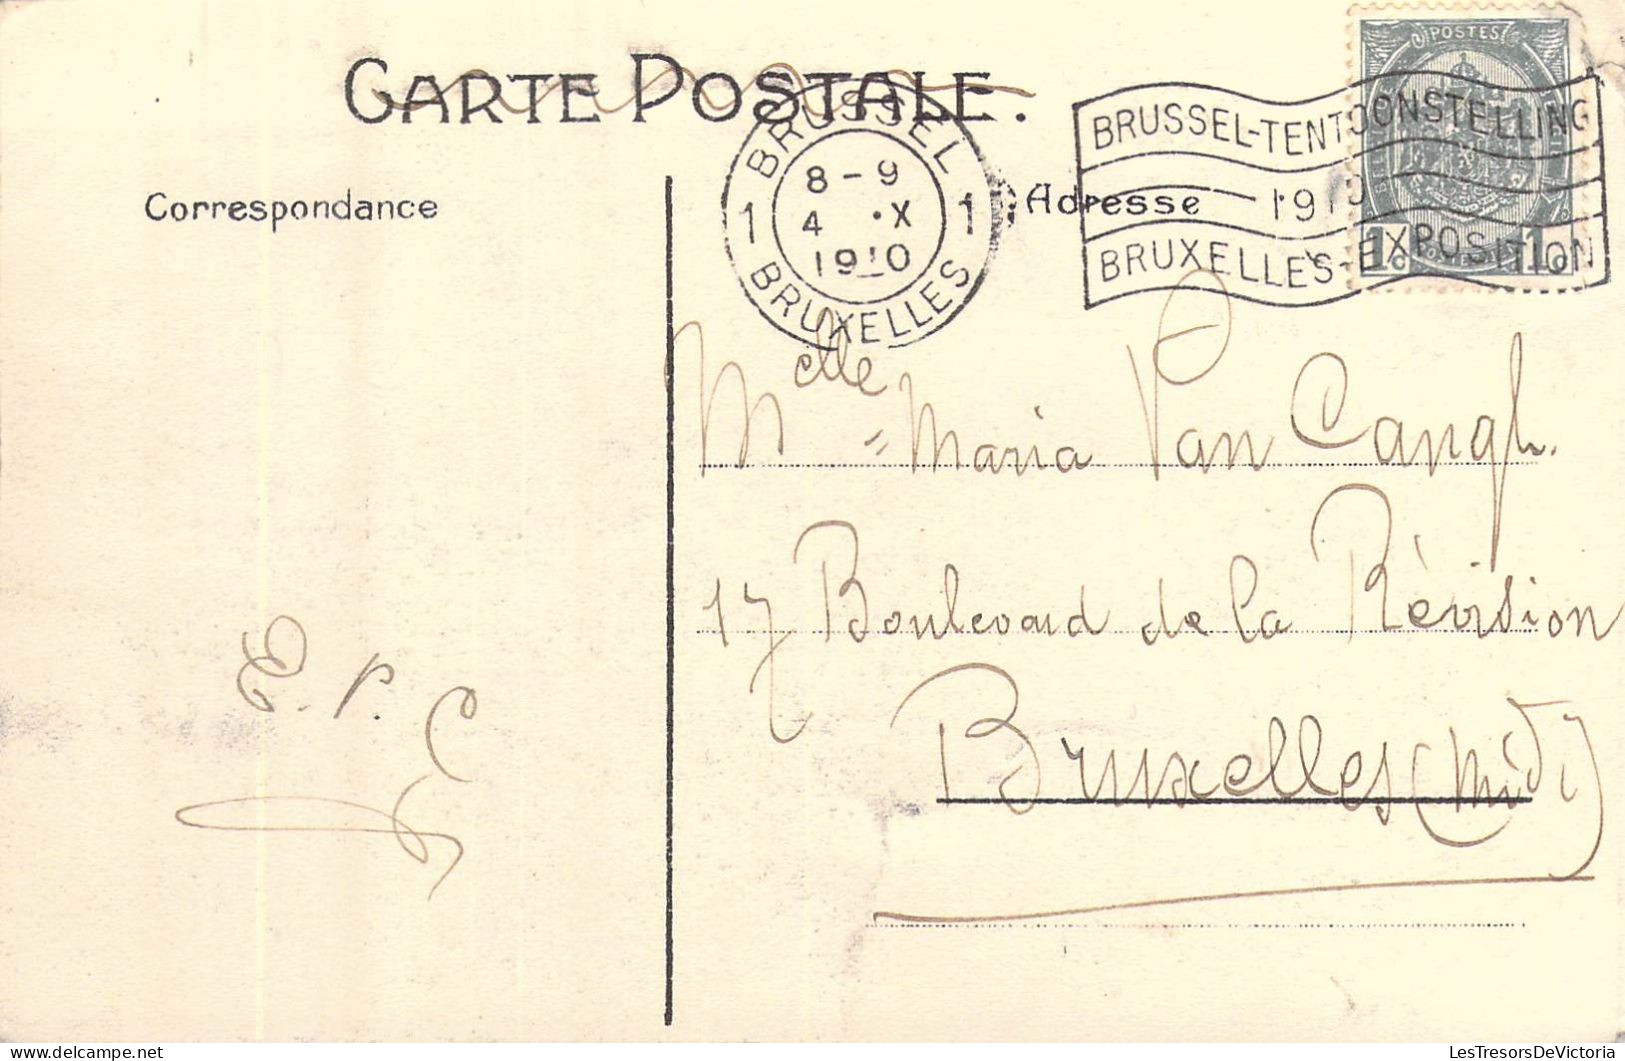 CARTE POSTALE.
BRUSSEL
8-9
1 4 ·X 1
1910
BRUXELLES
BRUSSEL-TENTOONSTELLING
1910
BRUXELLES-EXPOSITION
POSTES
1c 1c
Correspondance
Adresse
Melle Maria Van Cangh.
17 Boulevard de la Révision
Bruxelles (Midi)
LesTresorsDeVictoria.com